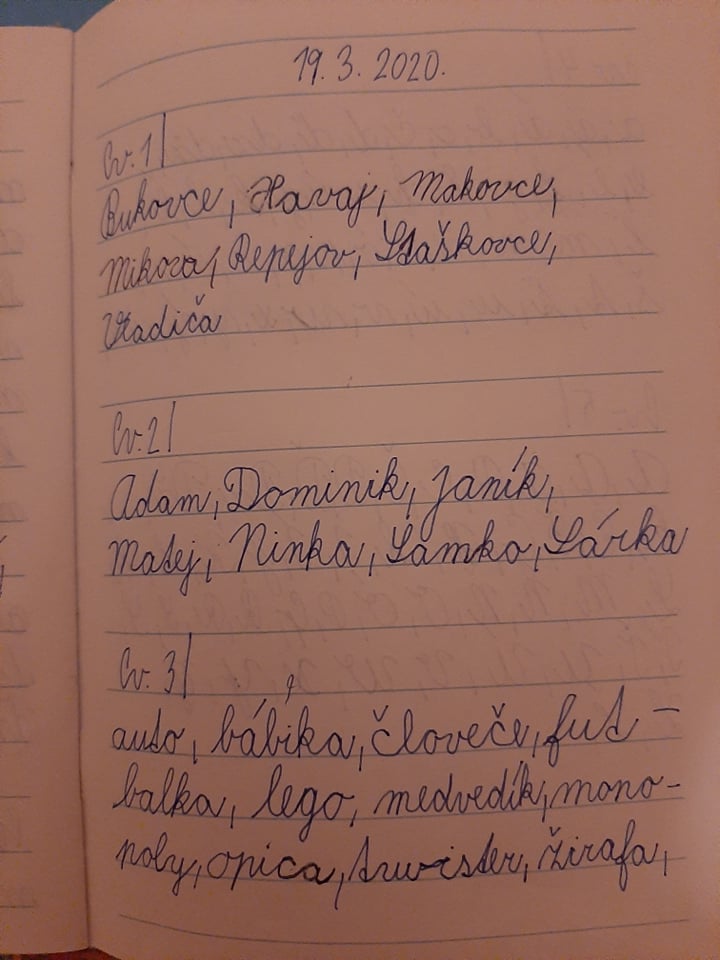 19. 3. 2020.
Cv. 1/
Bukovce, Havaj, Makovce,
Mikova, Repejov, Staškovce,
Vladiča
Cv. 2/
Adam, Dominik, Janík,
Matej, Ninka, Samko, Sárka
Cv. 3/
auto, bábika, človeče, fut-
balka, lego, medvedík, mono-
poly, opica, twister, žirafa,